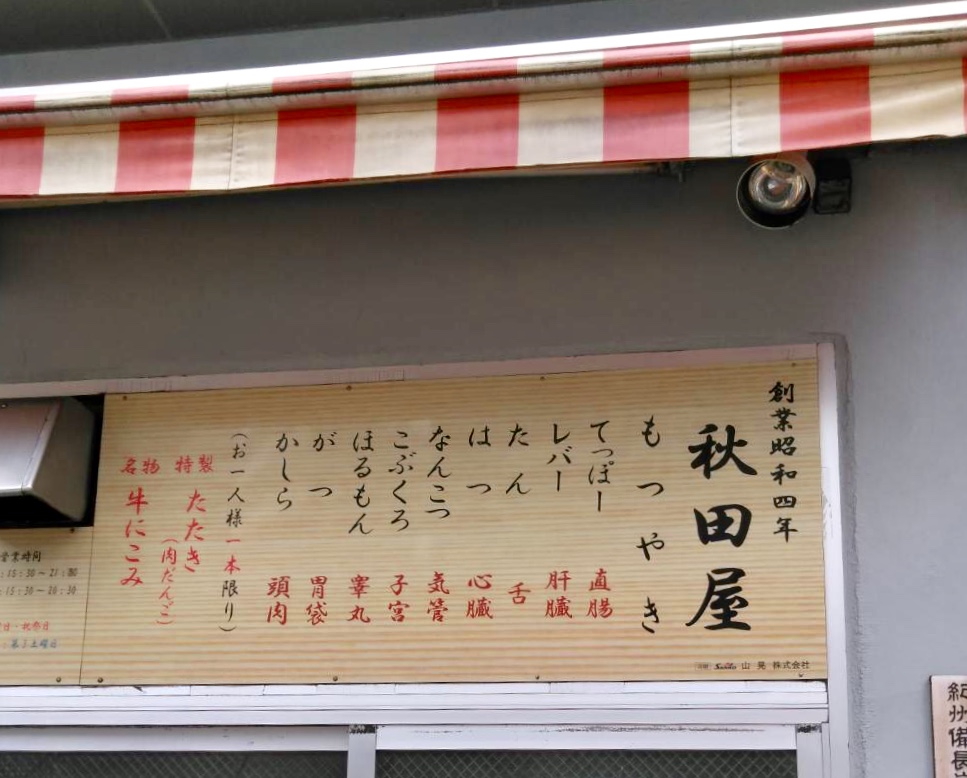 創業昭和四年
秋田屋
もつやき
てっぽー 直腸
レバー 肝臓
たん 舌
はつ 心臓
なんこつ 気管
こぶくろ 子宮
ほるもん 睾丸
がつ 胃袋
かしら 頭肉
(お一人様一本限り)
特製 たたき
(肉だんご)
名物 牛にこみ
営業時間
:15:30~21:00
:15:30~20:30
日・祝祭日
:第3土曜日
山晃 株式会社
紀州備長